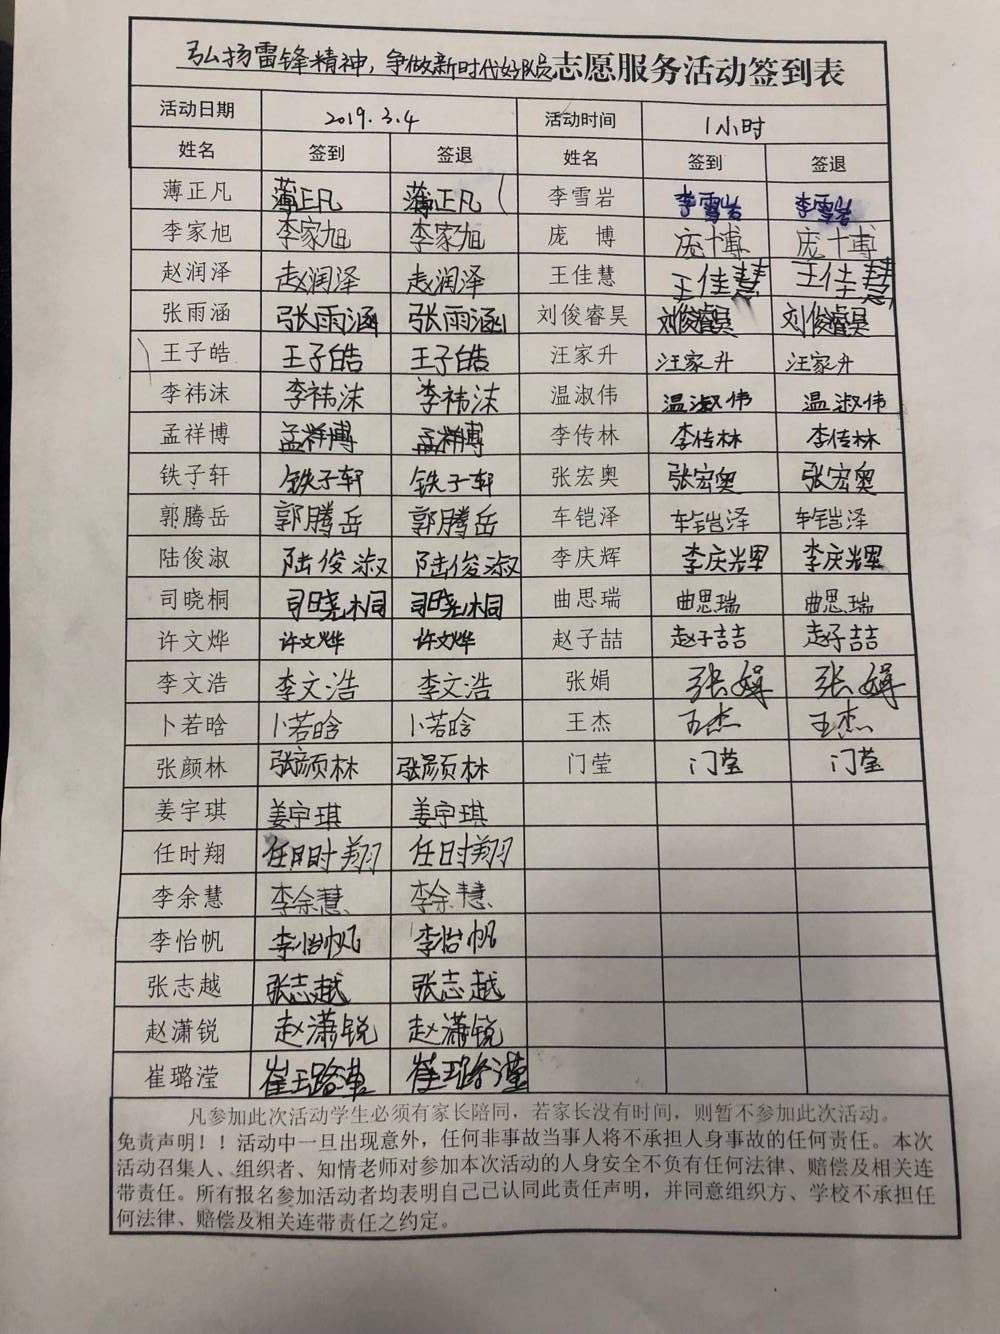 弘扬雷锋精神,争做新时代好队员志愿服务活动签到表
活动日期 2019.3.4 活动时间 1小时
姓名 签到 签退 姓名 签到 签退
薄正凡 薄正凡 薄正凡 李雪岩 李雪岩 李雪岩
李家旭 李家旭 李家旭 庞 博 庞博 庞博
赵润泽 赵润泽 赵润泽 王佳慧 王佳慧 王佳慧
张雨涵 张雨涵 张雨涵 刘俊睿昊 刘俊睿昊 刘俊睿昊
王子皓 王子皓 王子皓 汪家升 汪家升 汪家升
李祎沫 李祎沫 李祎沫 温淑伟 温淑伟 温淑伟
孟祥博 孟祥博 孟祥博 李传林 李传林 李传林
铁子轩 铁子轩 铁子轩 张宏奥 张宏奥 张宏奥
郭腾岳 郭腾岳 郭腾岳 车铠泽 车铠泽 车铠泽
陆俊淑 陆俊淑 陆俊淑 李庆辉 李庆辉 李庆辉
司晓桐 司晓桐 司晓桐 曲思瑞 曲思瑞 曲思瑞
许文烨 许文烨 许文烨 赵子喆 赵子喆 赵子喆
李文浩 李文浩 李文浩 张娟 张娟 张娟
卜若晗 卜若晗 卜若晗 王杰 王杰 王杰
张颜林 张颜林 张颜林 门莹 门莹 门莹
姜宇琪 姜宇琪 姜宇琪
任时翔 任时翔 任时翔
李余慧 李余慧 李余慧
李怡帆 李怡帆 李怡帆
张志越 张志越 张志越
赵潇锐 赵潇锐 赵潇锐
崔璐滢 崔璐滢 崔璐滢
凡参加此次活动学生必须有家长陪同，若家长没有时间，则暂不参加此次活动。
免责声明！！活动中一旦出现意外，任何非事故当事人将不承担人身事故的任何责任。本次
活动召集人、组织者、知情老师对参加本次活动的人身安全不负有任何法律、赔偿及相关连
带责任。所有报名参加活动者均表明自己己认同此责任声明，并同意组织方、学校不承担任
何法律、赔偿及相关连带责任之约定。